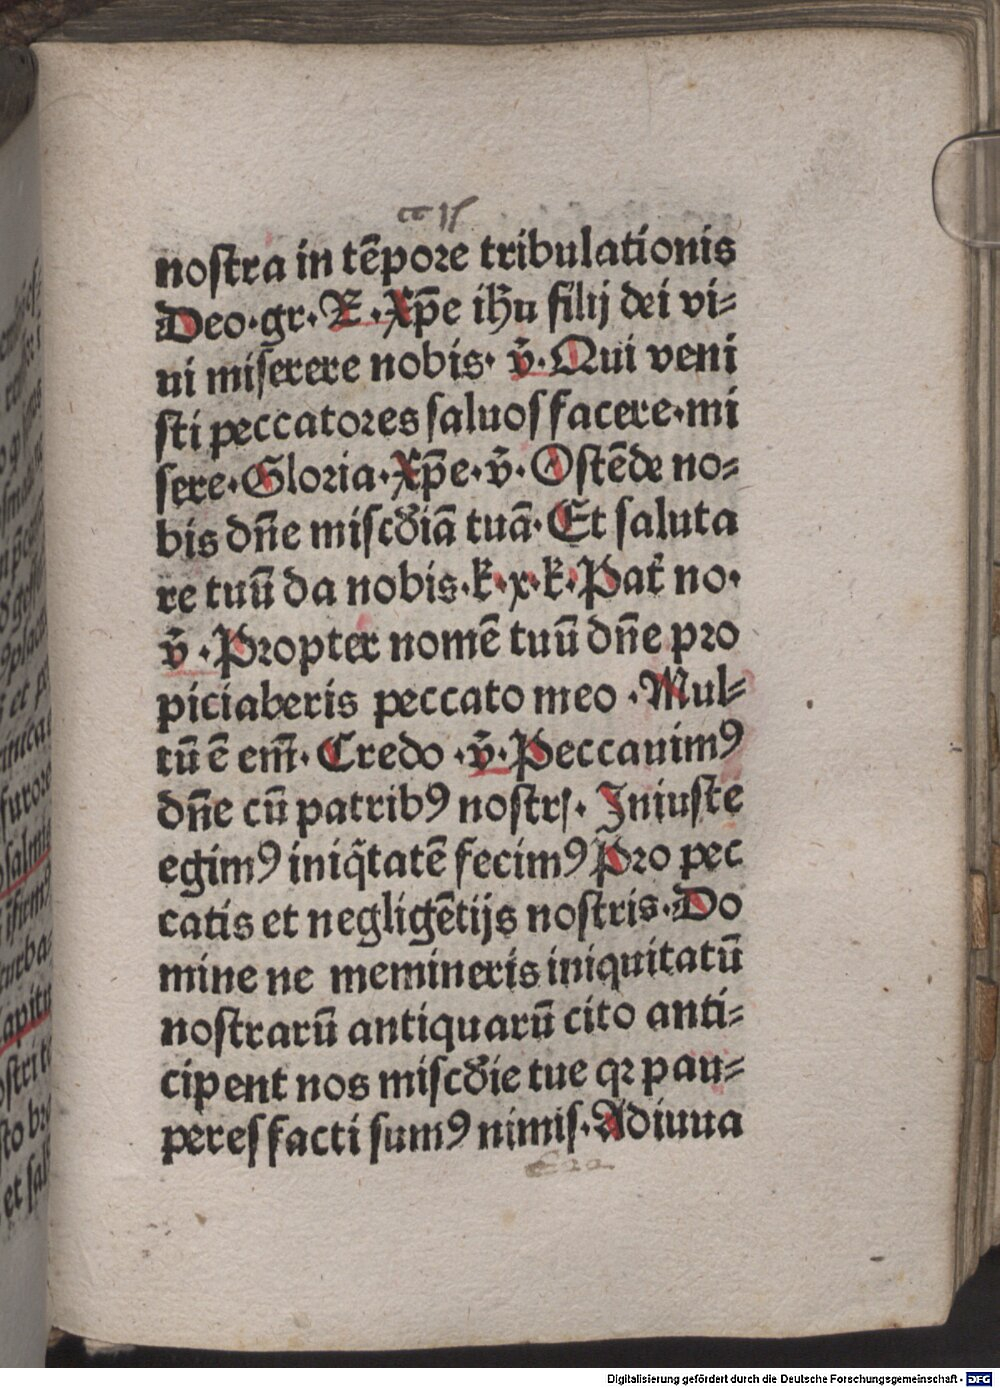 noſtra in tēpore tribulationis
Deo·gr·R·Xp̄e ih̄u filij dei vi⸗
ui miſerere nobis· v̄·Qui veni
ſti peccatores ſaluoſ facere·mi
ſere·Gloria·Xp̄e·v̄·Oſtēde no⸗
bis dn̄e miſcðiā tuā·Et ſaluta
re tuū da nobis·k̄·x·k̄·Pat̄ no·
v̄·Propter nomē tuū dn̄e pro
piciaberis peccato meo ·Mul⸗
tū ē em̄· Credo ·v̄·Peccauimꝰ
dn̄e cū patribꝰ noſtrſ· Iniuſte
egimꝰ iniq̄tatē fecimꝰ Pro pec
catis et negligētijs noſtris·Do
mine ne memineris iniquitatū
noſtrarū antiquarū cito anti⸗
cipent nos miſcðie tue qꝛ pau⸗
pereſ facti ſumꝰ nimiſ·Adiuua
Digitalisierung gefördert durch die Deutsche Forschungsgemeinschaft - DFG